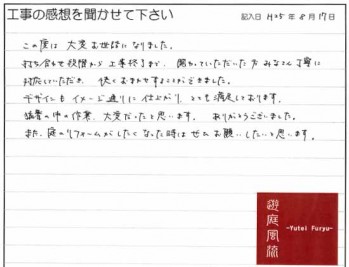 工事の感想を聞かせて下さい
記入日 H25年8月17日
この度は大変お世話になりました。
打ち合わせ段階から工事終了まで、関わっていただいた方みなさん丁寧に
対応していただき、快くおまかせすることができました。
デザインもイメージ通りに仕上がり、とても満足しております。
猛暑の中の作業、大変だったと思います。ありがとうございました。
また、庭のリフォームがしたくなった時はぜひお願いしたいと思います。
遊庭風流
~Yutei Furyu~